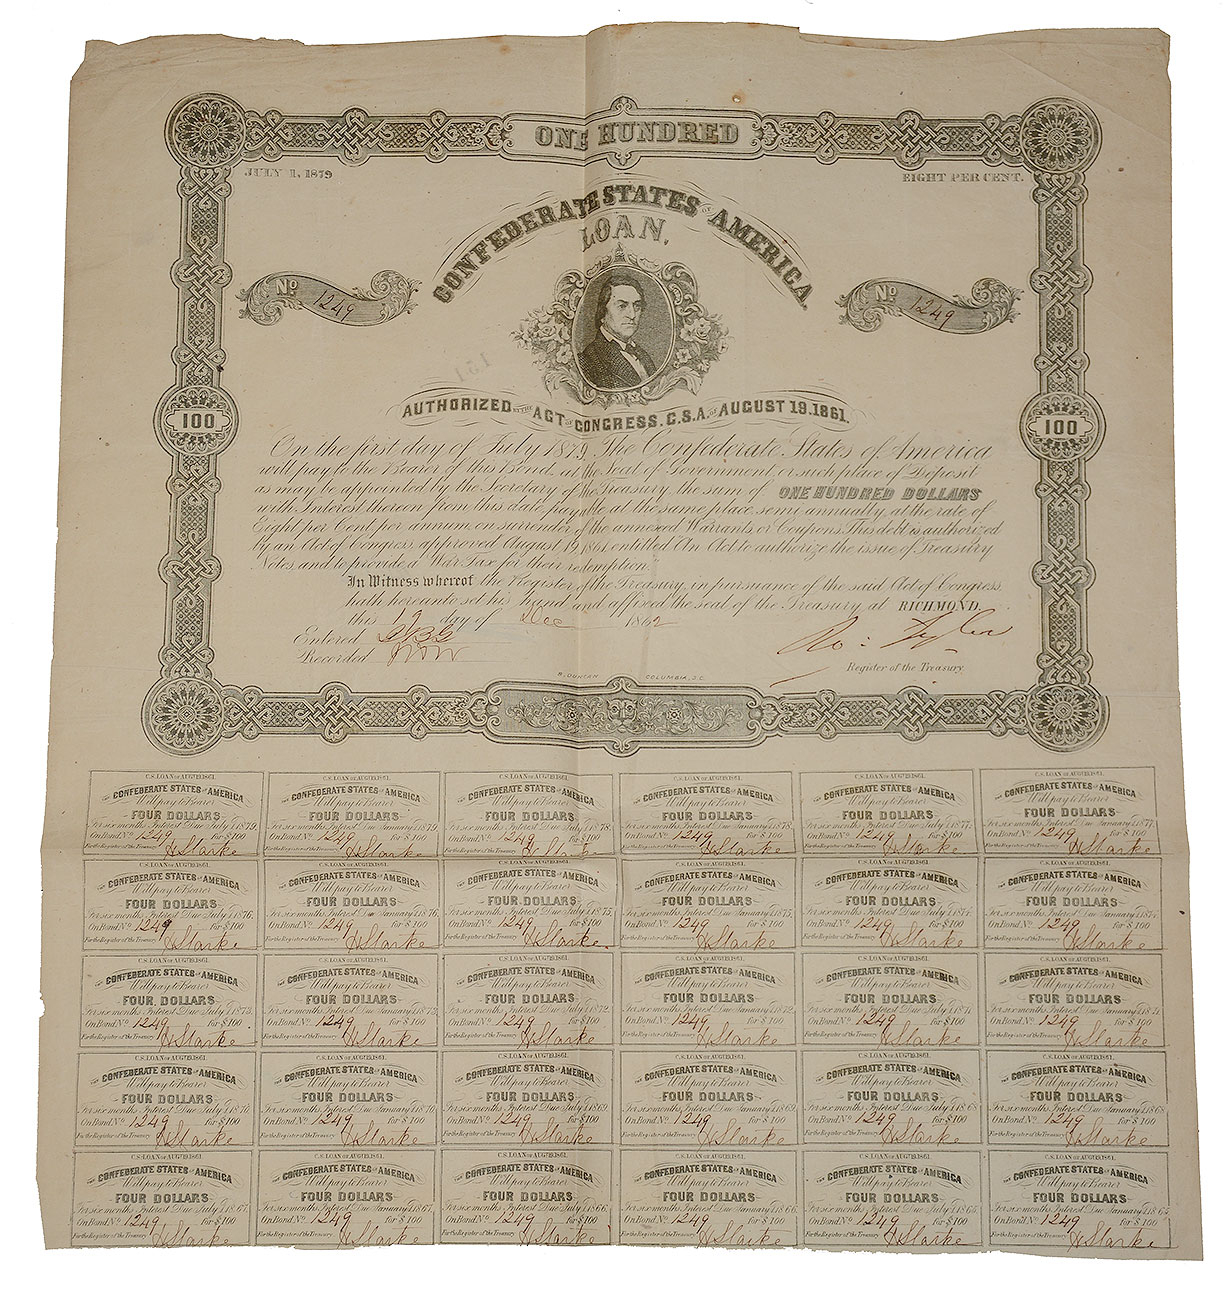 ONE HUNDRED
JULY 1, 1879
EIGHT PER CENT.
CONFEDERATE STATES OF AMERICA
LOAN.
No 1249
No 1249
AUTHORIZED BY THE ACT OF CONGRESS, C.S.A. OF AUGUST 19.1861.
100
100
On the first day of July 1879, The Confederate States of America
will pay to the Bearer of this Bond, at the Seat of Government, or such place of Deposit
as may be appointed by the Secretary of the Treasury, the sum of ONE HUNDRED DOLLARS
with Interest thereon from this date, payable at the same place, semi annually, at the rate of
Eight per Cent per annum, on surrender of the annexed Warrants, or Coupons. This debt is authorized
by an Act of Congress, approved August 19, 1861, entitled "An Act to authorize the issue of Treasury
Notes, and to provide a War Tax for their redemption."
In Witness whereof the Register of the Treasury, in pursuance of the said Act of Congress,
hath hereunto set his hand and affixed the seal of the Treasury at RICHMOND,
this 19 day of Dec 1862
Entered
Recorded
Ro: Tyler
Register of the Treasury.
R. DUNCAN COLUMBIA, S.C.
C.S. LOAN OF AUGUST 19, 1861. C.S. LOAN OF AUGUST 19, 1861. C.S. LOAN OF AUGUST 19, 1861. C.S. LOAN OF AUGUST 19, 1861. C.S. LOAN OF AUGUST 19, 1861. C.S. LOAN OF AUGUST 19, 1861.
THE CONFEDERATE STATES OF AMERICA THE CONFEDERATE STATES OF AMERICA THE CONFEDERATE STATES OF AMERICA THE CONFEDERATE STATES OF AMERICA THE CONFEDERATE STATES OF AMERICA THE CONFEDERATE STATES OF AMERICA
Will pay to Bearer Will pay to Bearer Will pay to Bearer Will pay to Bearer Will pay to Bearer Will pay to Bearer
FOUR DOLLARS FOUR DOLLARS FOUR DOLLARS FOUR DOLLARS FOUR DOLLARS FOUR DOLLARS
For six months Interest Due July 1 1879. For six months Interest Due January 1 1879. For six months Interest Due July 1 1878. For six months Interest Due January 1 1878. For six months Interest Due July 1 1877. For six months Interest Due January 1 1877.
On Bond No 1249 for $100 On Bond No 1249 for $100 On Bond No 1249 for $100 On Bond No 1249 for $100 On Bond No 1249 for $100 On Bond No 1249 for $100
For the Register of the Treasury H Starke For the Register of the Treasury H Starke For the Register of the Treasury H Starke For the Register of the Treasury H Starke For the Register of the Treasury H Starke For the Register of the Treasury H Starke
C.S. LOAN OF AUGUST 19, 1861. C.S. LOAN OF AUGUST 19, 1861. C.S. LOAN OF AUGUST 19, 1861. C.S. LOAN OF AUGUST 19, 1861. C.S. LOAN OF AUGUST 19, 1861. C.S. LOAN OF AUGUST 19, 1861.
THE CONFEDERATE STATES OF AMERICA THE CONFEDERATE STATES OF AMERICA THE CONFEDERATE STATES OF AMERICA THE CONFEDERATE STATES OF AMERICA THE CONFEDERATE STATES OF AMERICA THE CONFEDERATE STATES OF AMERICA
Will pay to Bearer Will pay to Bearer Will pay to Bearer Will pay to Bearer Will pay to Bearer Will pay to Bearer
FOUR DOLLARS FOUR DOLLARS FOUR DOLLARS FOUR DOLLARS FOUR DOLLARS FOUR DOLLARS
For six months Interest Due July 1 1876. For six months Interest Due January 1 1876. For six months Interest Due July 1 1875. For six months Interest Due January 1 1875. For six months Interest Due July 1 1874. For six months Interest Due January 1 1874.
On Bond No 1249 for $100 On Bond No 1249 for $100 On Bond No 1249 for $100 On Bond No 1249 for $100 On Bond No 1249 for $100 On Bond No 1249 for $100
For the Register of the Treasury H Starke For the Register of the Treasury H Starke For the Register of the Treasury H Starke For the Register of the Treasury H Starke For the Register of the Treasury H Starke For the Register of the Treasury H Starke
C.S. LOAN OF AUGUST 19, 1861. C.S. LOAN OF AUGUST 19, 1861. C.S. LOAN OF AUGUST 19, 1861. C.S. LOAN OF AUGUST 19, 1861. C.S. LOAN OF AUGUST 19, 1861. C.S. LOAN OF AUGUST 19, 1861.
THE CONFEDERATE STATES OF AMERICA THE CONFEDERATE STATES OF AMERICA THE CONFEDERATE STATES OF AMERICA THE CONFEDERATE STATES OF AMERICA THE CONFEDERATE STATES OF AMERICA THE CONFEDERATE STATES OF AMERICA
Will pay to Bearer Will pay to Bearer Will pay to Bearer Will pay to Bearer Will pay to Bearer Will pay to Bearer
FOUR DOLLARS FOUR DOLLARS FOUR DOLLARS FOUR DOLLARS FOUR DOLLARS FOUR DOLLARS
For six months Interest Due July 1 1873. For six months Interest Due January 1 1873. For six months Interest Due July 1 1872. For six months Interest Due January 1 1872. For six months Interest Due July 1 1871. For six months Interest Due January 1 1871.
On Bond No 1249 for $100 On Bond No 1249 for $100 On Bond No 1249 for $100 On Bond No 1249 for $100 On Bond No 1249 for $100 On Bond No 1249 for $100
For the Register of the Treasury H Starke For the Register of the Treasury H Starke For the Register of the Treasury H Starke For the Register of the Treasury H Starke For the Register of the Treasury H Starke For the Register of the Treasury H Starke
C.S. LOAN OF AUGUST 19, 1861. C.S. LOAN OF AUGUST 19, 1861. C.S. LOAN OF AUGUST 19, 1861. C.S. LOAN OF AUGUST 19, 1861. C.S. LOAN OF AUGUST 19, 1861. C.S. LOAN OF AUGUST 19, 1861.
THE CONFEDERATE STATES OF AMERICA THE CONFEDERATE STATES OF AMERICA THE CONFEDERATE STATES OF AMERICA THE CONFEDERATE STATES OF AMERICA THE CONFEDERATE STATES OF AMERICA THE CONFEDERATE STATES OF AMERICA
Will pay to Bearer Will pay to Bearer Will pay to Bearer Will pay to Bearer Will pay to Bearer Will pay to Bearer
FOUR DOLLARS FOUR DOLLARS FOUR DOLLARS FOUR DOLLARS FOUR DOLLARS FOUR DOLLARS
For six months Interest Due July 1 1870. For six months Interest Due January 1 1870. For six months Interest Due July 1 1869. For six months Interest Due January 1 1869. For six months Interest Due July 1 1868. For six months Interest Due January 1 1868.
On Bond No 1249 for $100 On Bond No 1249 for $100 On Bond No 1249 for $100 On Bond No 1249 for $100 On Bond No 1249 for $100 On Bond No 1249 for $100
For the Register of the Treasury H Starke For the Register of the Treasury H Starke For the Register of the Treasury H Starke For the Register of the Treasury H Starke For the Register of the Treasury H Starke For the Register of the Treasury H Starke
C.S. LOAN OF AUGUST 19, 1861. C.S. LOAN OF AUGUST 19, 1861. C.S. LOAN OF AUGUST 19, 1861. C.S. LOAN OF AUGUST 19, 1861. C.S. LOAN OF AUGUST 19, 1861. C.S. LOAN OF AUGUST 19, 1861.
THE CONFEDERATE STATES OF AMERICA THE CONFEDERATE STATES OF AMERICA THE CONFEDERATE STATES OF AMERICA THE CONFEDERATE STATES OF AMERICA THE CONFEDERATE STATES OF AMERICA THE CONFEDERATE STATES OF AMERICA
Will pay to Bearer Will pay to Bearer Will pay to Bearer Will pay to Bearer Will pay to Bearer Will pay to Bearer
FOUR DOLLARS FOUR DOLLARS FOUR DOLLARS FOUR DOLLARS FOUR DOLLARS FOUR DOLLARS
For six months Interest Due July 1 1867. For six months Interest Due January 1 1867. For six months Interest Due July 1 1866. For six months Interest Due January 1 1866. For six months Interest Due July 1 1865. For six months Interest Due January 1 1865.
On Bond No 1249 for $100 On Bond No 1249 for $100 On Bond No 1249 for $100 On Bond No 1249 for $100 On Bond No 1249 for $100 On Bond No 1249 for $100
For the Register of the Treasury H Starke For the Register of the Treasury H Starke For the Register of the Treasury H Starke For the Register of the Treasury H Starke For the Register of the Treasury H Starke For the Register of the Treasury H Starke